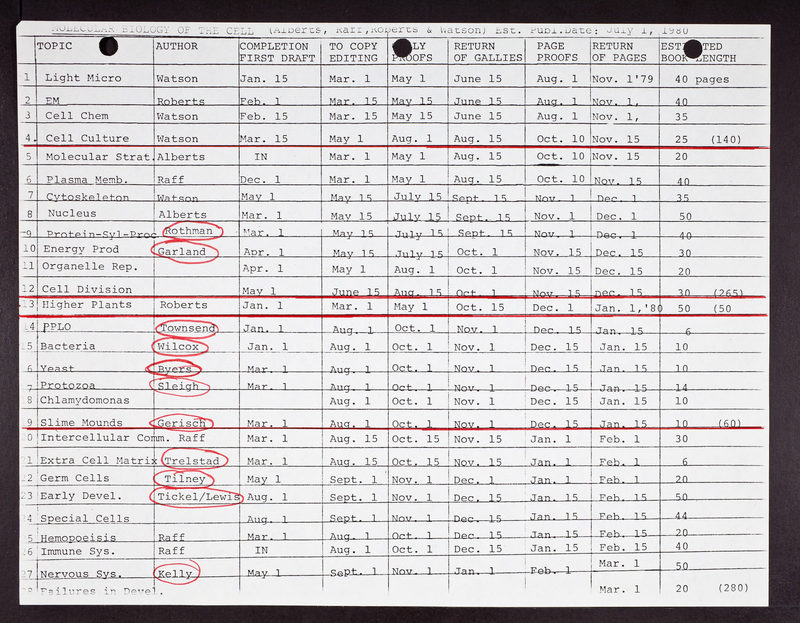 MOLECULAR BIOLOGY OF THE CELL (Alberts, Raff, Roberts & Watson) Est. Publ.Date: July 1, 1980
TOPIC AUTHOR COMPLETION FIRST DRAFT TO COPY EDITING PROOFS RETURN OF GALLIES PAGE PROOFS RETURN OF PAGES BOOK LENGTH
1 Light Micro Watson Jan. 15 Mar. 1 May 1 June 15 Aug. 1 Nov. 1'79 40 pages
2 EM Roberts Feb. 1 Mar. 15 May 15 June 15 Aug. 1 Nov. 1, 40
3 Cell Chem Watson Feb. 15 Mar. 15 May 15 June 15 Aug. 1 Nov. 1, 35
4. Cell Culture Watson Mar. 15 May 1 Aug. 1 Aug. 15 Oct. 10 Nov. 15 25 (140)
5 Molecular Strat. Alberts IN Mar. 1 May 1 Aug. 15 Oct. 10 Nov. 15 20
6 Plasma Memb. Raff Dec. 1 Mar. 1 May 1 Aug. 15 Oct. 10 Nov. 15 40
7 Cytoskeleton Watson May 1 May 15 July 15 Sept. 15 Nov. 1 Dec. 1 35
8 Nucleus Alberts Mar. 1 May 15 July 15 Sept. 15 Nov. 1 Dec. 1 50
9 Protein-Syl-Proc Rothman Mar. 1 May 15 July 15 Sept. 15 Nov. 1 Dec. 1 40
10 Energy Prod Garland Apr. 1 May 15 July 15 Oct. 1 Nov. 15 Dec. 15 30
11 Organelle Rep. Apr. 1 May 1 Aug. 1 Oct. 1 Nov. 15 Dec. 15 20
12 Cell Division May 1 June 15 Aug. 15 Oct 1 Nov. 15 Dec. 15 30 (265)
13 Higher Plants Roberts Jan. 1 Mar. 1 May 1 Oct. 15 Dec. 1 Jan. 1,'80 50 (50
14 PPLO Townsend Jan. 1 Aug. 1 Oct. 1 Nov. 1 Dec. 15 Jan. 15 6
5 Bacteria Wilcox Jan. 1 Aug. 1 Oct. 1 Nov. 1 Dec. 15 Jan. 15 10
6 Yeast Byers Mar. 1 Aug. 1 Oct. 1 Nov. 1 Dec. 15 Jan. 15 10
7 Protozoa Sleigh Mar. 1 Aug. 1 Oct. 1 Nov. 1 Dec. 15 Jan. 15 14
8 Chlamydomonas Aug. 1 Oct. 1 Nov. 1 Dec. 15 Jan. 15 10
9 Slime Mounds Gerisch Mar. 1 Aug. 1 Oct. 1 Nov. 1 Dec. 15 Jan. 15 10 (60)
20 Intercellular Comm. Raff Mar. 1 Aug. 15 Oct. 15 Nov. 15 Jan. 1 Feb. 1 30
21 Extra Cell Matrix Trelstad Mar. 1 Aug. 15 Oct. 15 Nov. 15 Jan. 1 Feb. 1 6
22 Germ Cells Tilney May 1 Sept. 1 Nov. 1 Dec. 1 Jan. 1 Feb. 1 20
23 Early Devel. Tickel/Lewis Aug. 1 Sept. 1 Nov. 1 Dec. 15 Jan. 15 Feb. 15 50
24 Special Cells Aug. 1 Sept. 1 Nov. 1 Dec. 15 Jan. 15 Feb. 15 44
5 Hemopoeisis Raff Mar. 1 Aug. 1 Oct. 1 Dec. 15 Jan. 15 Feb. 15 20
26 Immune Sys. Raff IN Aug. 1 Oct. 1 Dec. 15 Jan. 15 Feb. 15 40
27 Nervous Sys. Kelly May 1 Sept. 1 Nov. 1 Jan. 1 Feb. 1 Mar. 1 50
28 Failures in Devel. Mar. 1 20 (280)